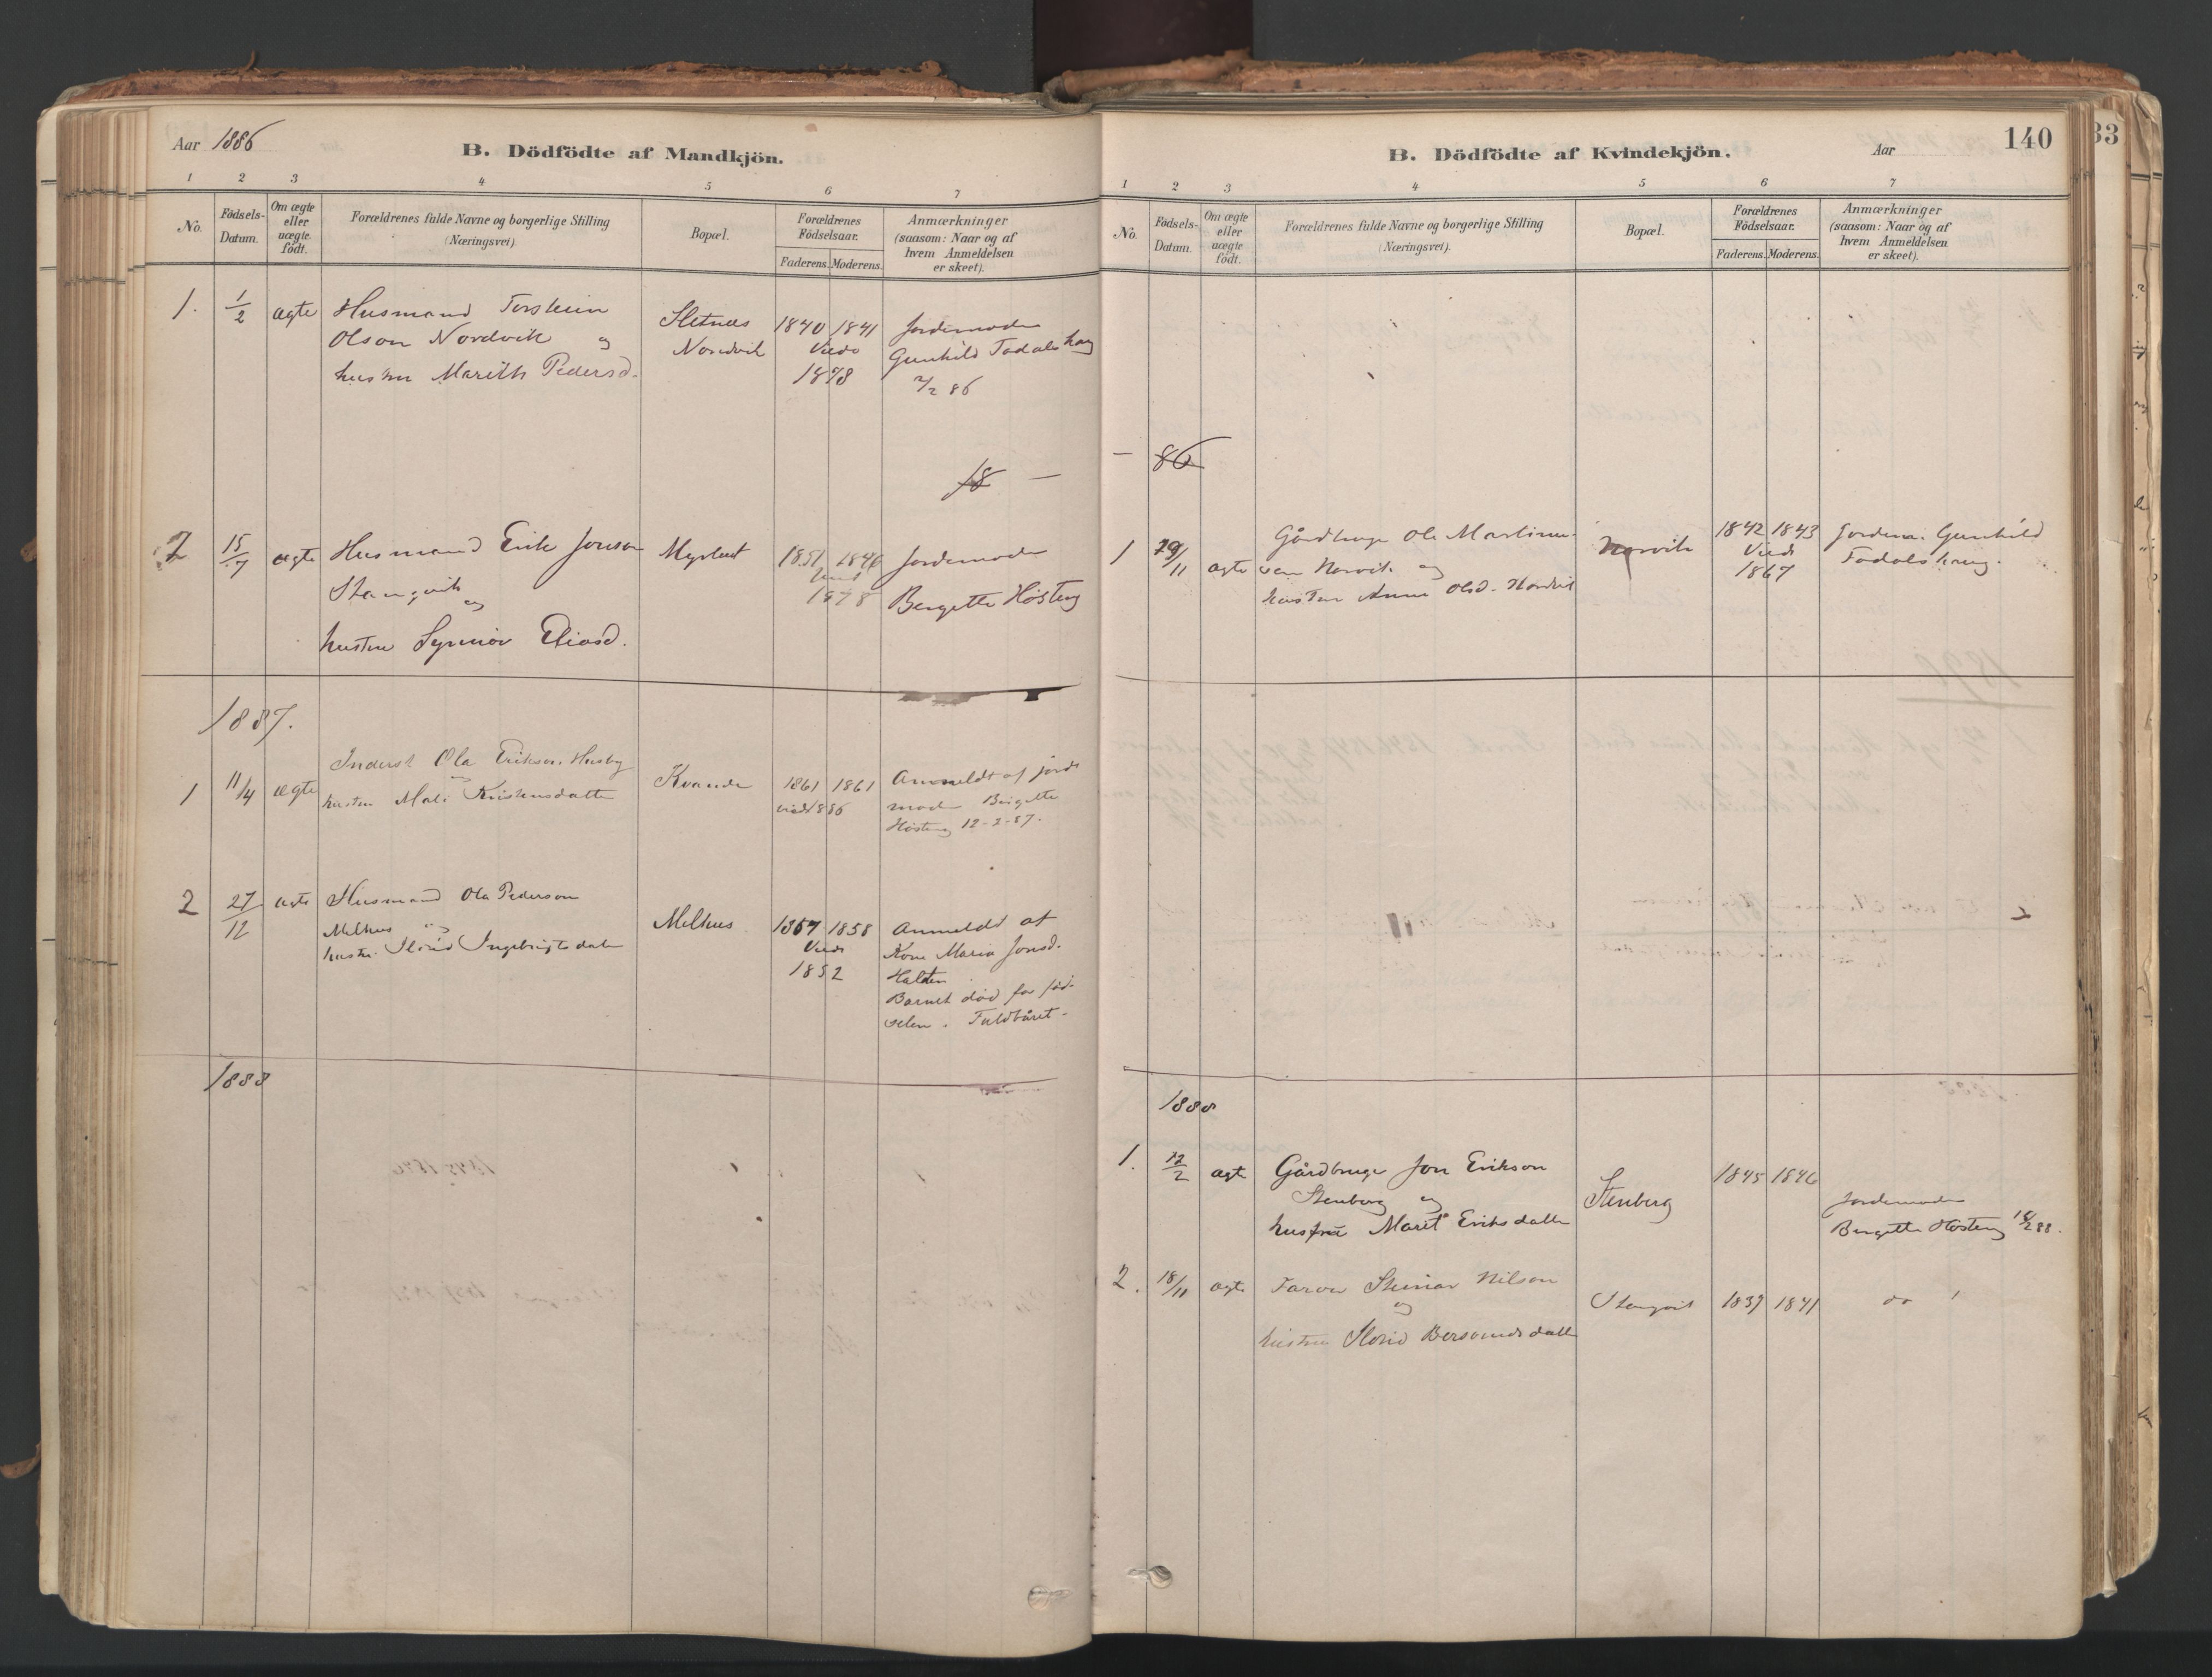 Aar 1886
B. Dödfödte af Mandkjön.
1 2 3 4 5 6 7
No.
Födsels-Datum.
Om ægte eller uægte födt.
Forældrenes fulde Navne og borgerlige Stilling
(Næringsvei).
Bopæl.
Forældrenes Födselsaar.
Faderens. Moderens.
Anmærkninger
(saasom: Naar og af
hvem Anmeldelsen
er skeet).
1. 1/2 ægte Husmand Torstein
Olson Nordvik og
hustru Marith Pedersd.
Nordvik
1840 1841
Viede
1878
Jordemoder
Gunhild Todalshaug
2/2 86
18 —
2 15/7 ægte Husmand Erik Jonson
Stangvik
og
hustru Synnöv Eliasd.
1851 1846
1878
Jordemoder
Bergette Hösteng
1887.
1 11/4 ægte Inderst Ola Erikson Husby
og
hustru Mali Kristensdatter
Kvande
1861 1861
viede 1886
Anmeldt af jorde
moder Bergette
Hösteng 12-2-87.
2 27/12 ægte Husmand Ola Pederson
Melhus og
hustru Ingebrigtsdatter
Melhus
1857 1858
Viede
1852
Anmeldt af
Kone Maren Jonsd.
Halten
Barnet död för föd-
selen. Fuldbåret.
1888
B. Dödfödte af Kvindekjön.
Aar
140
33
1 2 3 4 5 6 7
No.
Födsels-Datum.
Om ægte eller uægte födt.
Forældrenes fulde Navne og borgerlige Stilling
(Næringsvei).
Bopæl.
Forældrenes Födselsaar.
Faderens. Moderens.
Anmærkninger
(saasom: Naar og af
hvem Anmeldelsen
er skeet).
— 86
1 29/11 ægte Gårdbruger Ole Martinus-
sen Norvik og
hustru Anne Olsd. Nordvik
Norvik
1842 1843
Viede
1867
Jordem. Gunhild
Todalshaug.
1888
1. 12/2 ægte Gårdbruger Jon Erikson
Stenberg og
hustru Maret Eriksdatter
Stenberg
1845 1846
Jordemoder
Bergette Hösteng 18/2 88.
2. 18/11 ægte Steinar Nilson
og
hustru Bersvendsdatter
Stangvik
1839 1841
do